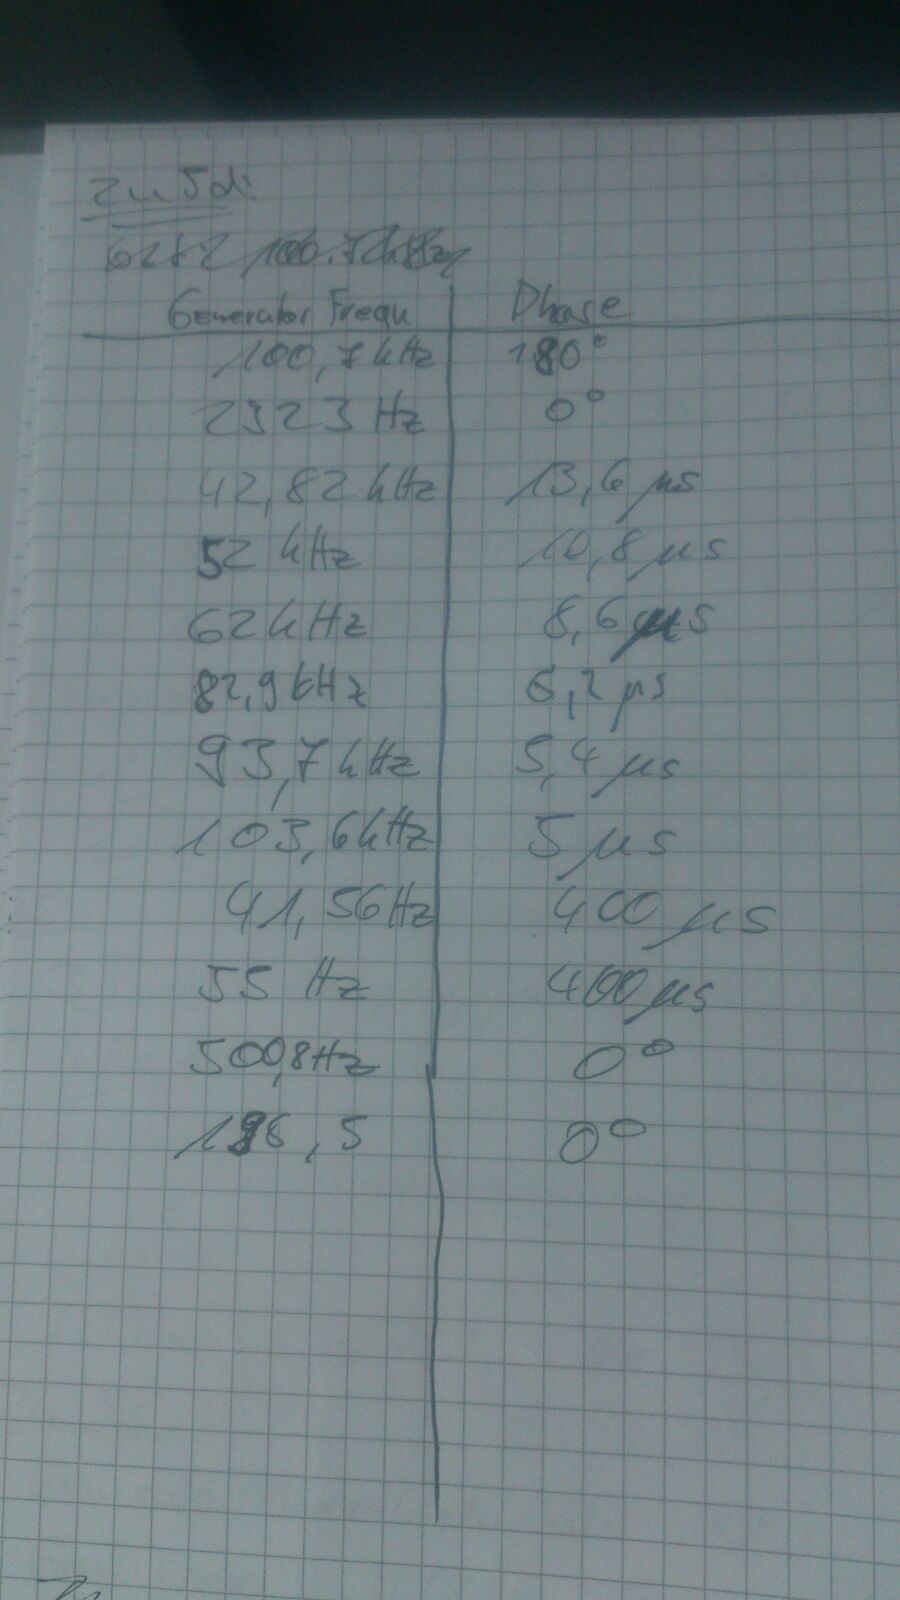 zu 5d:
Generator Frequ Phase
100,7 kHz 180°
2923 Hz 0°
42,82 kHz 13,6 µs
52 kHz 10,8 µs
62 kHz 8,6 µs
82,9 kHz 6,2 µs
93,7 kHz 5,4 µs
103,6 kHz 5 µs
41,56 Hz 400 µs
55 Hz 400 µs
500,8 Hz 0°
0°